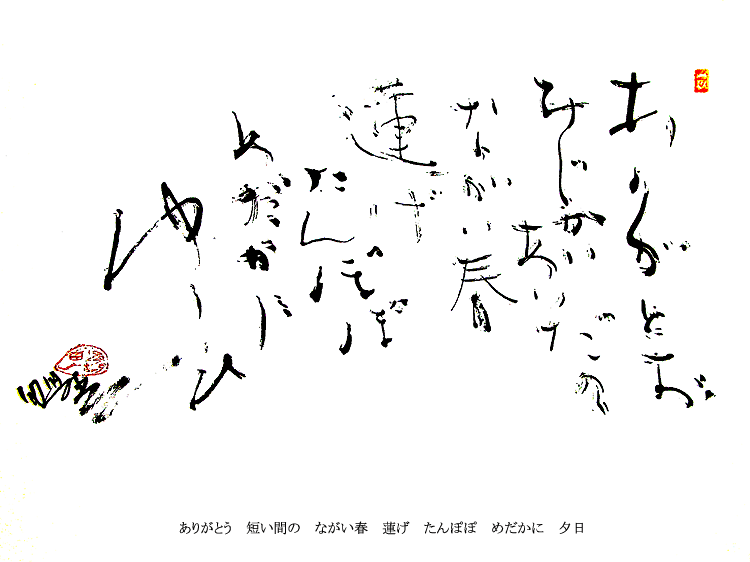 ありがとお
みじかい
あいだの
ながい春
蓮げ
たんぽぽ
めだかに
ゆーひ
ありがとう 短い間の ながい春 蓮げ たんぽぽ めだかに 夕日